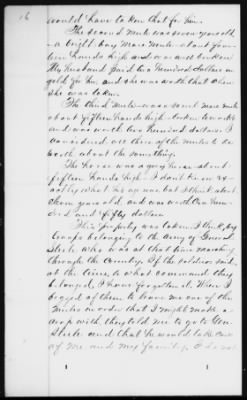 16
would have taken that for him.
The second mule was seven years old
a bright bay mare mule about four
teen hands high and was well broken
My husband paid two hundred dollars in
gold for him and she was worth that when
she was taken.
The third mule was a sorrel mare mule
about fifteen hands high broken to work
and was worth two hundred dollars. I
considered all three of the mules to be
worth about the same thing.
The horse was a gray horse about
fifteen hands high. I dont know ex
actly what his age was but I think about
seven years old and was worth two hun
dred and fifty dollars
This property was taken I think by
troops belonging to the army of General
Steele who was at that time marching
through the Country. If the soldiers said
at the time to what command they
belonged, I have forgotten it. When I
begged of them to leave me one of the
mules in order that I might make a
crop with they told me to go to Gen
Steele and that he would take care
of me and my family. I do not